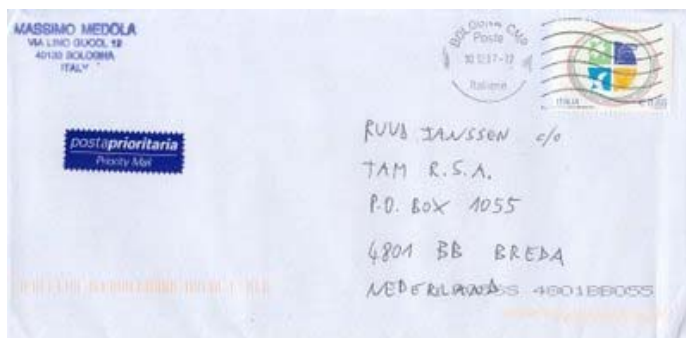 MASSIMO MEDOLA
VIA LINO GUCCI, 12
40133 BOLOGNA
ITALY
BOLOGNA CMP
Poste
Italiane
ITALIA
postaprioritaria
Priority Mail
RUUD JANSSEN c/o
TAM R.S.A.
P.O. BOX 1055
4801 BB BREDA
NEDERLAND 4801BB055